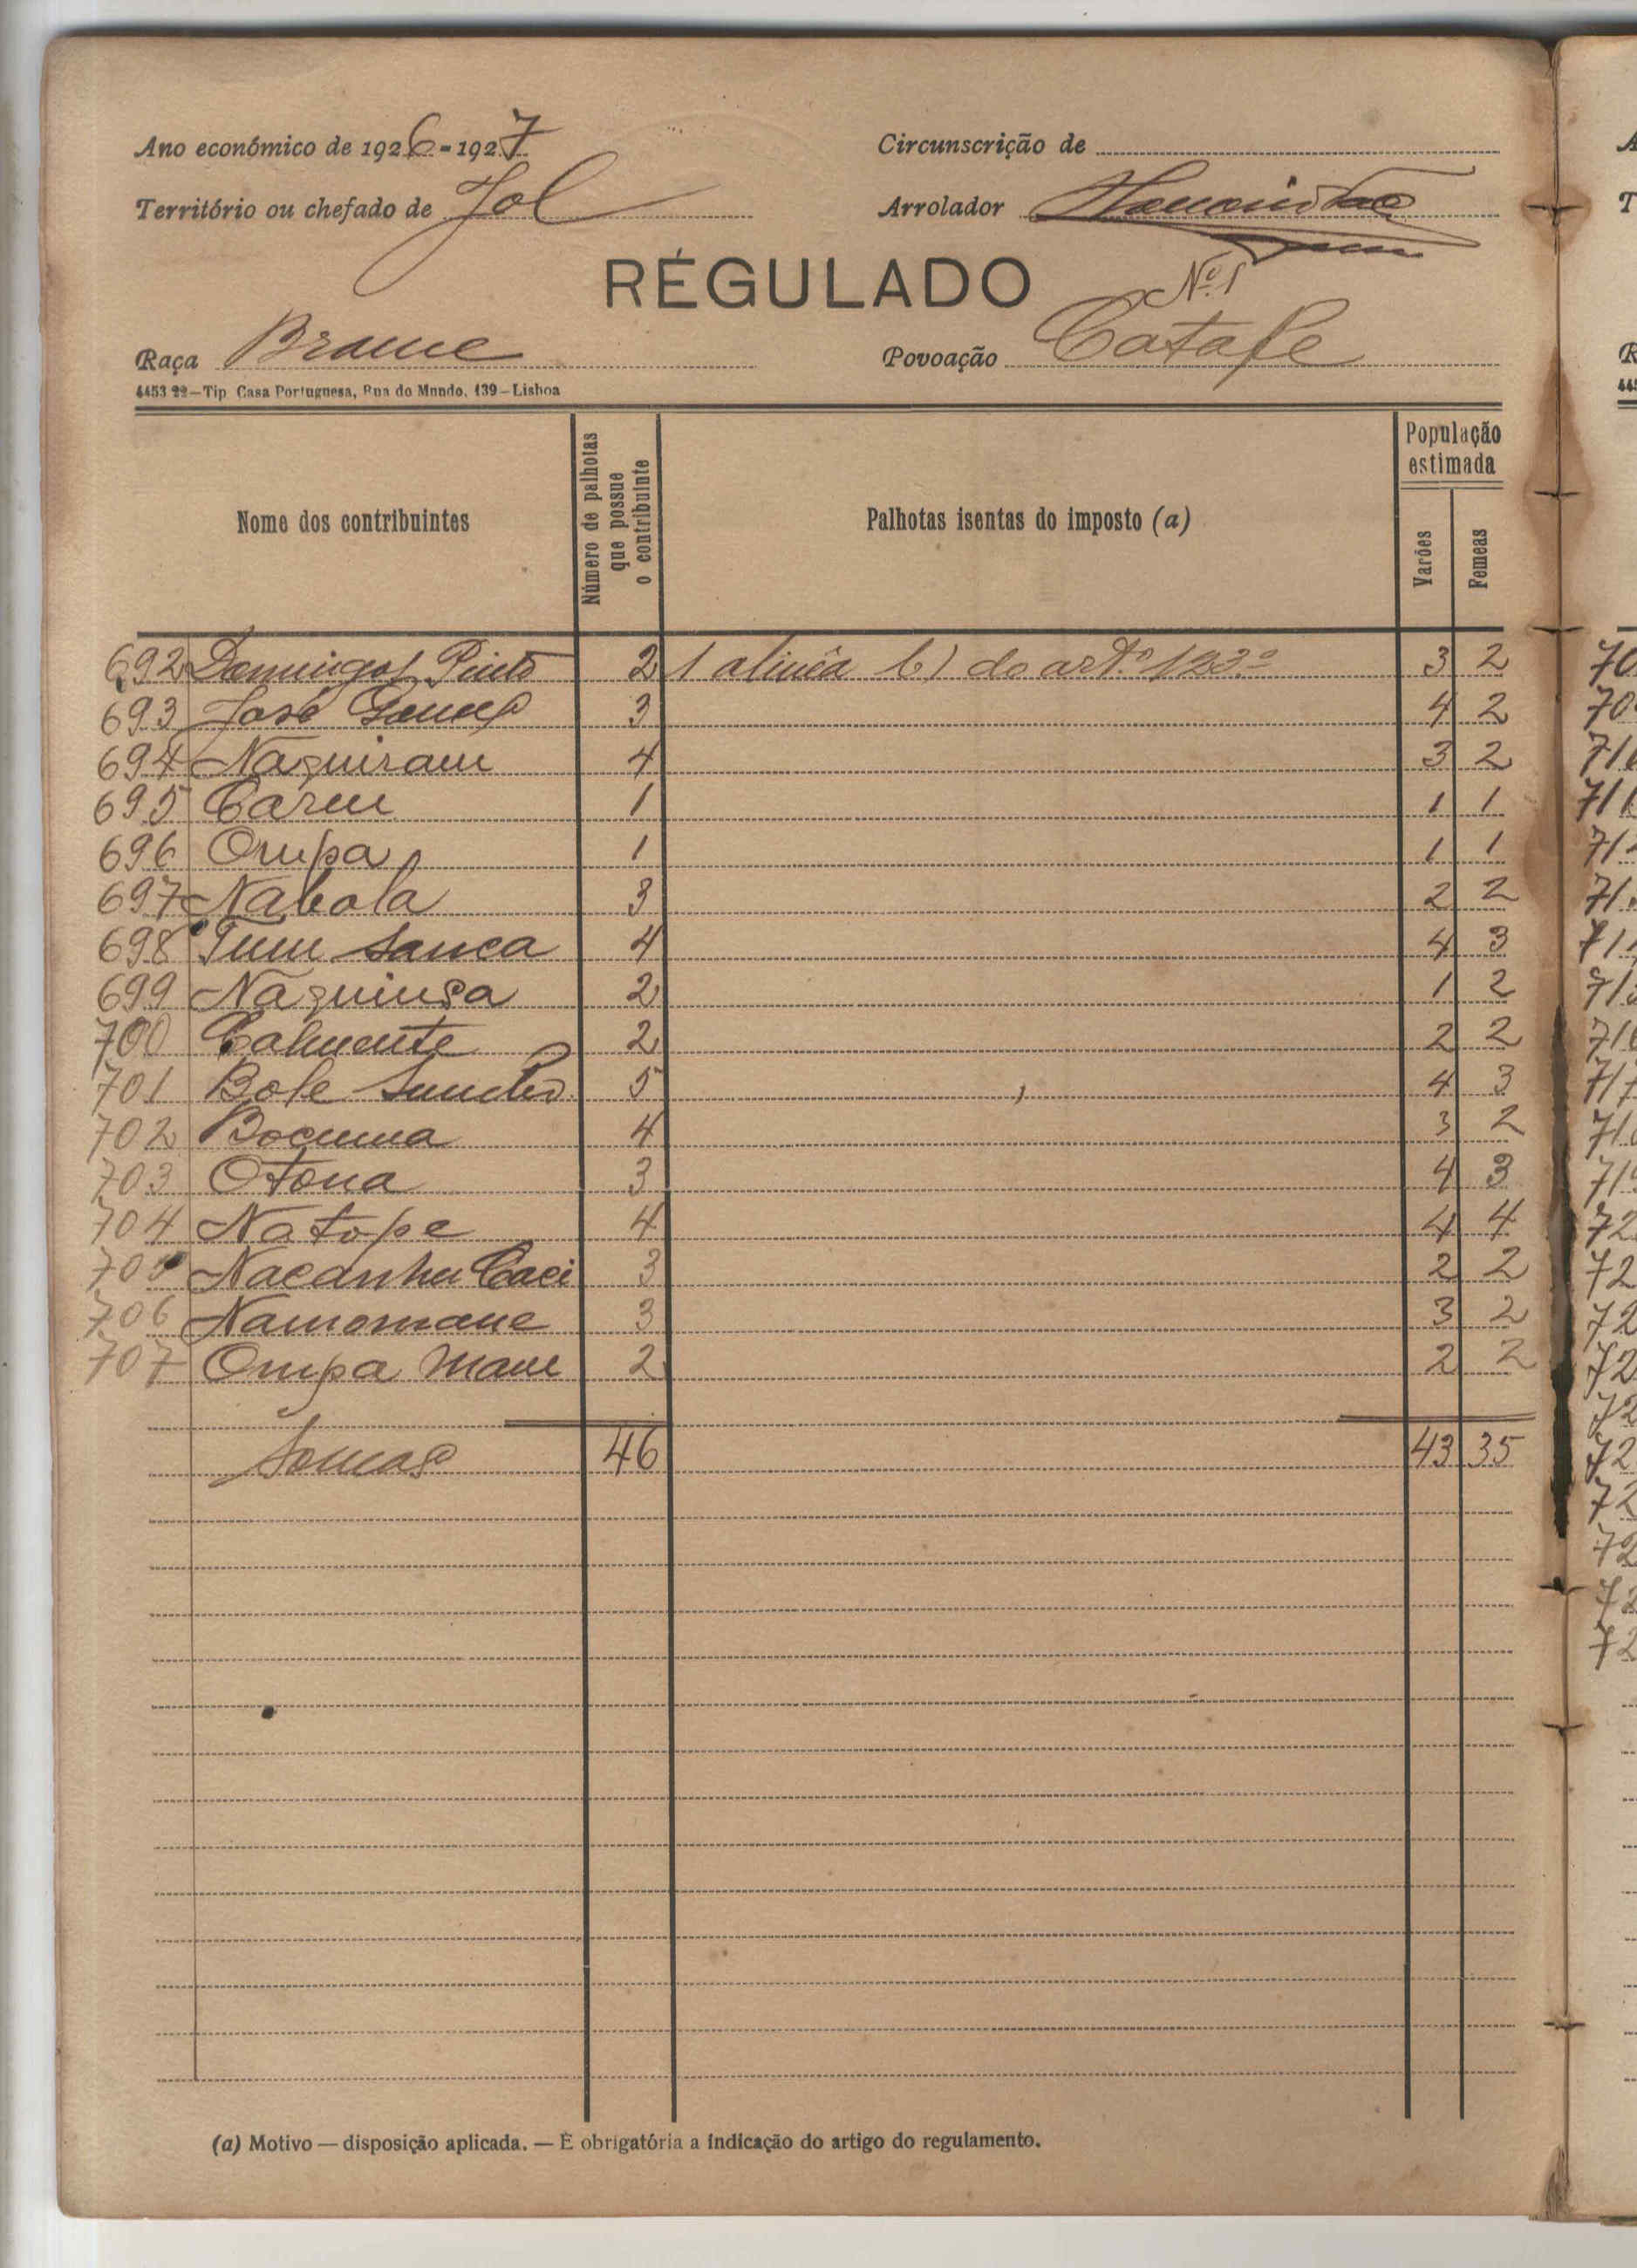 Ano económico de 1926-1927
Circunscrição de
Território ou chefado de Jol
Arrolador
RÉGULADO
Nº 1
Raça Brame
Povoação Catafe
4453 22—Tip Casa Portuguesa, Rua do Mundo, 139—Lisboa
Nome dos contribuintes
Número de palhotas que possue o contribuinte
Palhotas isentas do imposto (a)
População estimada
Varões
Femeas
692 Domingos Pinto 2 1 alinêa b) do artº 123º 3 2
693 José Gomes 3 4 2
694 Naquiram 4 3 2
695 1 1 1
696 Orupa 1 1 1
697 Nabola 3 2 2
698 Tum Sanca 4 4 3
699 Naquinsa 2 1 2
700 Calumente 2 2 2
701 Bole 5 4 3
702 Bocuma 4 3 2
703 Otona 3 4 3
704 Natope 4 4 4
705 Nacanha Caci 3 2 2
706 Namomane 3 3 2
707 Orupa Mane 2 2 2
Somas 46 43 35
(a) Motivo — disposição aplicada. — É obrigatória a indicação do artigo do regulamento.